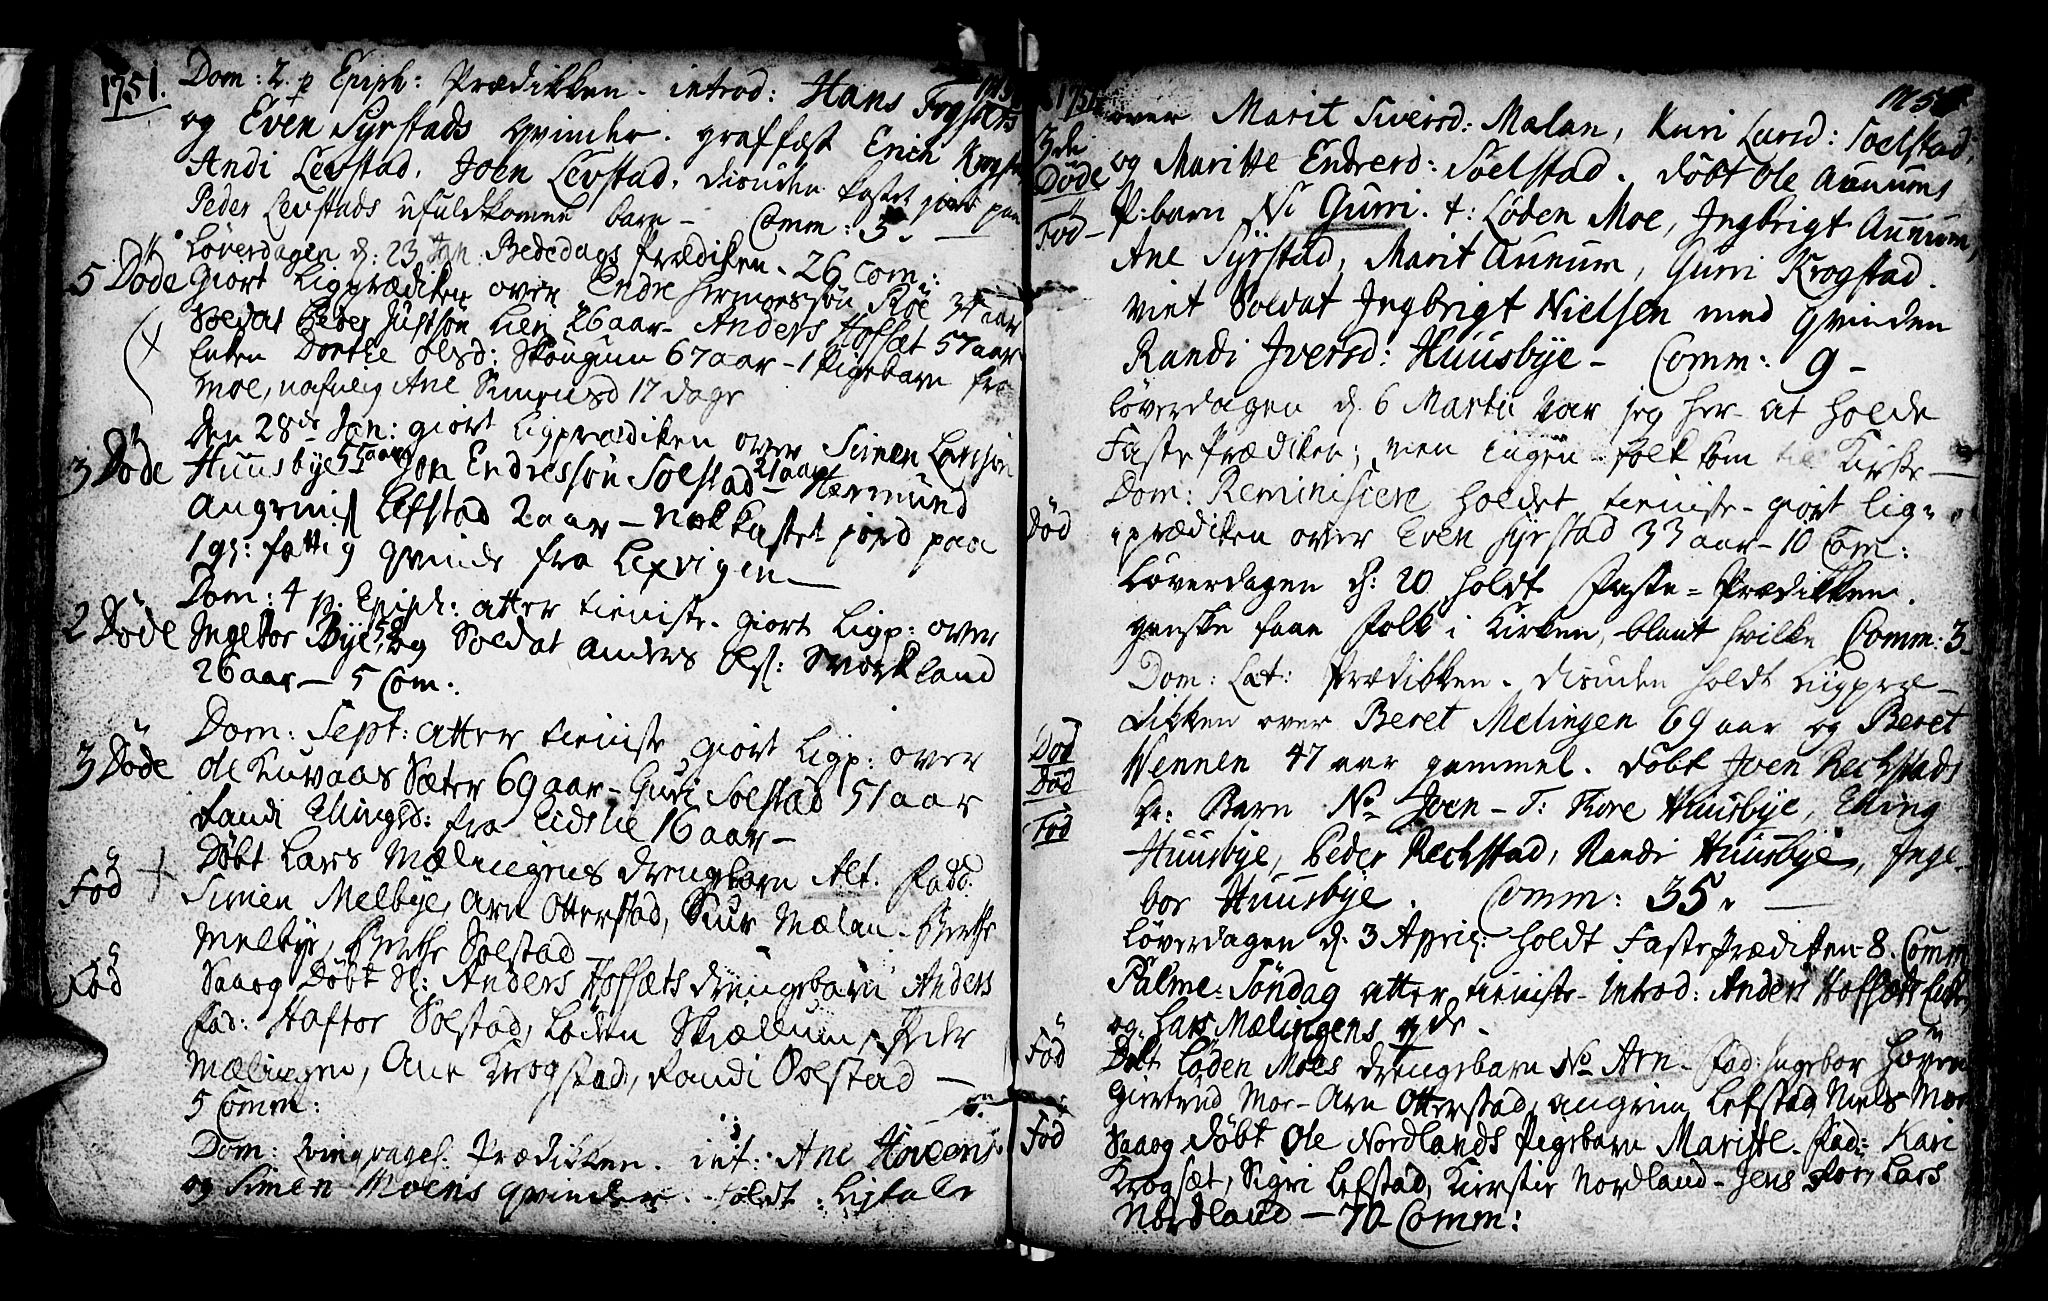 1751.
Dom: 2. p Epiph: Prædikken. introd: Hans Fogsæts
og Even Syrstads qvinder. graffæst Erich Krogst
Andi Levstad, Joen Levstad, disuden kastet jord paa
Peder Levstads ufuldkomne barn — Comm: 3. —
Løverdagen d: 23 Jan: Bededags Prædiken. 26 Com:
5 Døde giort Ligprædiken over Endre Hermoessøn Moe 34 aar
Soldat Peder Justsøn Lien 26 aar — Anders Hofsæt 57 aar
Enken Dorthe Olsd: Skougum 67 aar — 1 Pigebarn fra
Moe, nafnlig Ane Simensd 17 dage
Den 28de Jan: giort Ligprædiken over Simen Larssøn
3 Døde Huusbye 55 aar Jon Endressøn Solstad 21 aar — Hermund
Angrims Lefstad 2 aar — Nok kastet jord paa
1 gl: fattig qvinde fra Lexvigen —
Dom: 4 p. Epiph: atter tieniste. giort Ligp: over
2 Døde Ingebor Bye 52 og Soldat Anders Ols: Svorkland
26 aar — 5 Com:
Dom: Sept: atter tieniste giort Ligp: over
3 Døde Ole Kuvaas Sæter 69 aar — Guri Solstad 51 aar
Randi Ellingsd: fra Eidslie 16 aar —
Døbt Lars Mælingens drengebarn Alt. Fadd:
Fød Simen Melbye, Arn Otterstad, Siur Mælan. Berthe
Melbye, Berthe Solstad —
Fød Saaog Døbt Sl: Anders Hofsæts drengebarn Anders
Fad: Haftor Solstad, Løden Skiællum, Peder
Mælingen, Ane Krogstad, Randi Solstad —
5 Comm:
Dom: Qvinqvages: Prædikken. int: Ane Hovens
og Simen Moens qvinder. Holdt Ligtale
1751
over Marit Siversd: Malan, Kari Larsd: Solstad,
3de Døde og Maritte Endresd: Solstad. døbt Ole Aunums
Fød — P: barn No Gurri. t: Løden Moe, Ingbrigt Aunum,
Ane Syrstad, Marit Aunum, Gurri Krogstad.
viet Soldat Ingbrigt Nielsen med qvinden
Randi Iversd: Huusbye — Comm: 9 —
Løverdagen d. 6 Martii var jeg her at holde
Faste Prædiken; men ingen folk kom til Kirke —
Dom: Reminiscere holdet tieniste. giort Lig-
Død prædiken over Even Syrstad 33 aar — 10 Com:
Løverdagen d: 20 holdt Faste-Prædikken.
ganske faae Folk i Kirken, blant hvilke Comm: 3 —
Dom: Læt: Prædikken. disuden holdt Liigpræ-
dikken over Beret Melingen 69 aar og Beret
Død Død Wennen 47 aar gammel. døbt Joen Rechstads
Fød Dr: Barn No Joen — T: Tore Huusbye, Elling
Huusbye, Peder Rechstad, Randi Huusbye, Inge-
bor Huusbye. Comm: 35. —
Løverdagen d. 3 April: holdt FastePrædiken — 8. Comm
Palme-Søndag atter tieniste — Introd: Anders Hofsæts Enke,
og Lars Mælingens qde.
Fød Døbt Løden Moes drengebarn No Arn. Fad: Ingebor Hoven
Giertrud Moe — Arn Otterstad, Angrim Lefstad Niels Moe
Fød Saaog døbt Ole Nordlands Pigebarn Maritte. Fad: Kari
Krogsæt, Sigri Lefstad, Kierstie Nordland — Jens Moe, Lars
Nordland — 70 Comm: